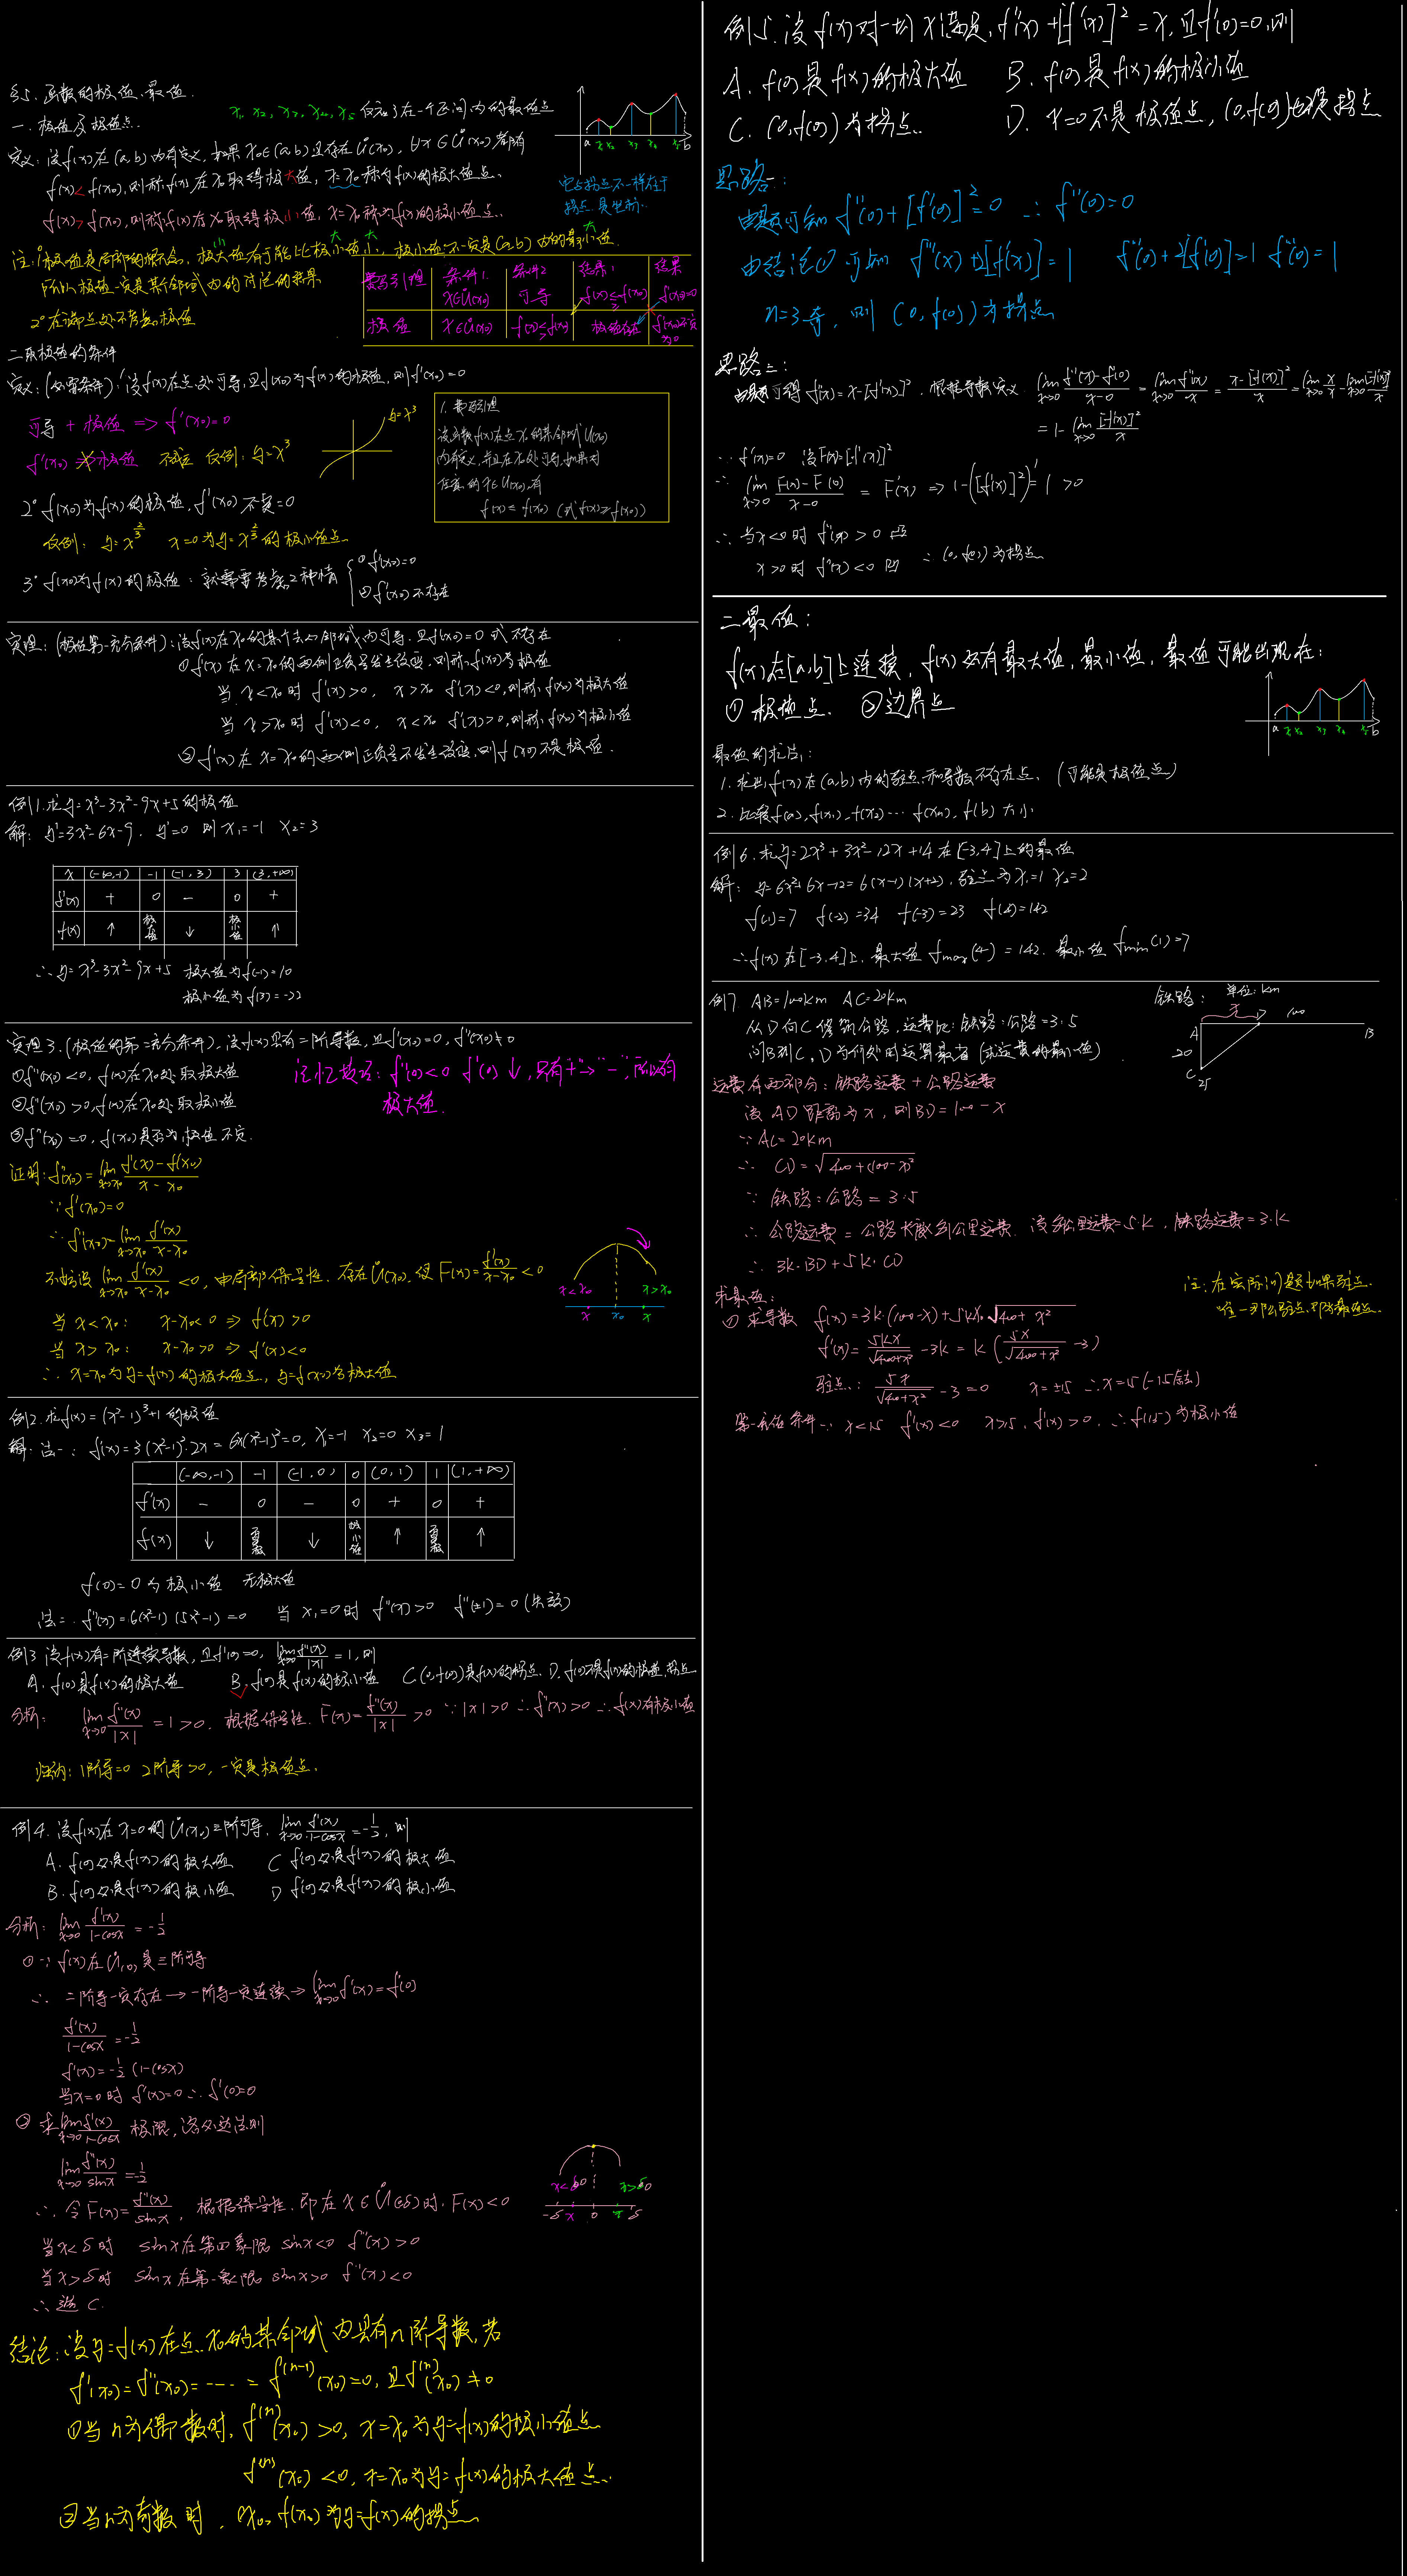 §5. 函数的极值、最值.
一. 极值及极值点.
x₁, x₂, x₃, x₄, x₅ 仅在一个区间内的最值点
定义: 设f(x)在(a,b)内有定义, 如果x₀∈(a,b)且存在Ů(x₀), ∀x∈Ů(x₀)都有
f(x)<f(x₀), 则称f(x)在x₀取得极大值, x=x₀称为f(x)的极大值点.
f(x)>f(x₀), 则称f(x)在x₀取得极小值, x=x₀称为f(x)的极小值点.
它与拐点不一样在于
拐点是坐标.
注: 1°极值是局部的概念, 极大值有可能比极小值小, 极小值不一定是(a,b)内的最小值.
所以极值一定是某个邻域内的讨论的结果
2° 在端点处不考虑极值
费马引理 条件1. x∈U(x₀) 条件2 可导 结果1 f(x)≤f(x₀) 结果 f'(x₀)=0
极值 x∈Ů(x₀) f(x)<f(x₀) 极值存在 f'(x₀)不一定为0
二. 取极值的条件
定义: (必要条件): 设f(x)在点x₀处可导, 且f(x₀)为f(x)的极值, 则f'(x₀)=0
可导 + 极值 => f'(x₀)=0
f'(x₀) ≠> 极值 不成立 反例: y=x³
y=x³
1. 费马引理
设函数f(x)在点x₀的某邻域U(x₀)
内有定义, 并且在x₀处可导, 如果对
任意的x∈U(x₀), 有
f(x)≤f(x₀) (或f(x)≥f(x₀))
2° f(x₀)为f(x)的极值, f'(x₀)不一定=0
反例: y=x^(2/3) x=0为y=x^(2/3)的极小值点
3° f(x₀)为f(x)的极值: 就需要考虑2种情 ① f'(x₀)=0
② f'(x₀)不存在
定理: (极值第一充分条件): 设f(x)在x₀的某个去心邻域内可导, 且f'(x₀)=0或不存在
① f'(x)在x=x₀的两侧正负号发生改变, 则称f(x₀)为极值
当x<x₀时 f'(x)>0, x>x₀ f'(x)<0, 则称f(x₀)为极大值
当x>x₀时 f'(x)<0, x<x₀ f'(x)>0, 则称f(x₀)为极小值
② f'(x)在x=x₀的两侧正负号不发生改变, 则f(x₀)不是极值.
例1. 求y=x³-3x²-9x+5的极值
解: y'=3x²-6x-9. y'=0 则x₁=-1 x₂=3
x (-∞,-1) -1 (-1,3) 3 (3,+∞)
f'(x) + 0 - 0 +
f(x) ↑ 极大值 ↓ 极小值 ↑
∴y=x³-3x²-9x+5 极大值为f(-1)=10
极小值为f(3)=-22
定理3. (极值的第二充分条件). 设f(x)具有二阶导数, 且f'(x₀)=0, f''(x₀)≠0
① f''(x₀)<0, f(x)在x₀处取极大值
② f''(x₀)>0, f(x)在x₀处取极小值
③ f''(x₀)=0, f(x₀)是否为极值不定.
记忆技巧: f''(x)<0 f'(x)↓, 只有"+"→"-", 所以有
极大值.
证明: f''(x₀)=lim x→x₀ (f'(x)-f'(x₀))/(x-x₀)
∵ f'(x₀)=0
∴ f''(x₀)=lim x→x₀ f'(x)/(x-x₀)
不妨设 lim x→x₀ f'(x)/(x-x₀) <0, 由局部保号性, 存在Ů(x₀), 使F(x)=f'(x)/(x-x₀)<0
当x<x₀: x-x₀<0 ⇒ f'(x)>0
当x>x₀: x-x₀>0 ⇒ f'(x)<0
∴ x=x₀为y=f(x)的极大值点, y=f(x₀)为极大值
x<x₀ x>x₀
x x₀ x
例2. 求f(x)=(x²-1)³+1的极值
解: 法一: f'(x)=3(x²-1)²·2x=6x(x²-1)²=0, x₁=-1 x₂=0 x₃=1
(-∞,-1) -1 (-1,0) 0 (0,1) 1 (1,+∞)
f'(x) - 0 - 0 + 0 +
f(x) ↓ ↓ 极小值 ↑ ↑
f(0)=0为极小值 无极大值
法二: f''(x)=6(x²-1)(5x²-1)=0 当x₁=0时 f''(x)>0 f''(±1)=0(失效)
例3 设f(x)有二阶连续导数, 且f'(0)=0, lim x→0 f''(x)/|x|=1, 则
A. f(0)是f(x)的极大值 B. f(0)是f(x)的极小值 C.(0,f(0))是f(x)的拐点. D. f(0)不是f(x)的极值, 拐点
分析: lim x→0 f''(x)/|x|=1>0. 根据保号性. F(x)=f''(x)/|x|>0 ∵|x|>0 ∴f''(x)>0 ∴f(x)有极小值
归纳: 1阶导=0 2阶导>0, 一定是极值点.
例4. 设f(x)在x=0的Ů(x₀)二阶可导, lim x→0 f'(x)/(1-cosx)=-1/2, 则
A. f(0)必是f(x)的极大值 C f(0)必是f(x)的极大值
B. f(0)必是f(x)的极小值 D f(0)必是f(x)的极小值
分析: lim x→0 f'(x)/(1-cosx)=-1/2
①∵ f(x)在Ů(0)是二阶可导
∴ 二阶导一定存在→一阶导一定连续→lim x→0 f'(x)=f'(0)
f'(x)/(1-cosx)=-1/2
f'(x)=-1/2(1-cosx)
当x=0时 f'(x)=0 ∴f'(0)=0
② 求lim x→0 f'(x)/(1-cosx) 极限, 洛必达法则
lim x→0 f''(x)/sinx=-1/2
∴ 令F(x)=f''(x)/sinx, 根据保号性. 即在x∈Ů(0,δ)时. F(x)<0
当x<δ时 sinx在第四象限 sinx<0 f''(x)>0
当x>δ时 sinx在第一象限 sinx>0 f''(x)<0
∴选 C.
-δ x 0 x δ
结论: 设y=f(x)在点x₀的某邻域内具有n阶导数, 若
f'(x₀)=f''(x₀)=----=f^(n-1)(x₀)=0, 且f^(n)(x₀)≠0
①当n为偶数时, f^(n)(x₀)>0, x=x₀为y=f(x)的极小值点
f^(n)(x₀)<0, x=x₀为y=f(x)的极大值点.
②当n为奇数时, (x₀, f(x₀))为y=f(x)的拐点
例5. 设f(x)对一切x满足, f''(x)+[f'(x)]²=x, 且f'(0)=0, 则
A. f(0)是f(x)的极大值 B. f(0)是f(x)的极小值
C. (0,f(0))为拐点. D. x=0不是极值点, (0,f(0))也不是拐点
思路一:
由题可知 f''(0)+[f'(0)]²=0 ∴f''(0)=0
由结论① 可知 f'''(x)+2[f'(x)]=1 f'''(0)+2[f'(0)]=1 f'''(0)=1
n=3奇, 则 (0,f(0))为拐点
思路二:
由题可得 f''(x)=x-[f'(x)]². 根据导数定义. lim x→0 (f''(x)-f''(0))/(x-0)=lim x→0 f''(x)/x=(x-[f'(x)]²)/x=lim x→0 x/x-lim x→0 [f'(x)]²/x
=1-lim x→0 [f'(x)]²/x
∵f'(x)=0 设F(x)=[f'(x)]²
∴ lim x→0 (F(x)-F(0))/(x-0)=F'(x) ⇒ 1-([f'(x)]²)'=1>0
∴ 当x<0时 f''(x)>0 凹
x>0时 f''(x)<0 凹 ∴(0,f(0))为拐点
二 最值:
f(x)在[a,b]上连续, f(x)必有最大值, 最小值, 最值可能出现在:
① 极值点. ②边界点
最值的求法:
1. 求出f(x)在(a,b)内的驻点和导数不存在点. (可能是极值点)
2. 比较f(a), f(x₁), f(x₂)…f(xn), f(b)大小
例6. 求y=2x³+3x²-12x+14在[-3,4]上的最值
解: y'=6x²+6x-12=6(x-1)(x+2), 驻点为x₁=1 x₂=2
f(1)=7 f(-2)=34 f(-3)=23 f(4)=142
∴f(x)在[-3,4]上, 最大值fmax(4)=142. 最小值fmin(1)=7
例7 AB=100km AC=20km
从D向C修到公路, 运费比: 铁路:公路=3:5
问B到C, D为何处时运算最省 (求运费的最小值)
铁路: 单位: km
A x 100 B
20
C 25
运费有两部分: 铁路运费+公路运费
设AD距离为x, 则BD=100-x
∵AC=20km
∴ CD=√(400+(100-x)²)
∵ 铁路:公路=3:5
∴ 公路运费=公路长度每公里运费. 设每公里运费=5·k, 铁路运费=3·k
∴ 3k·BD+5k·CD
求最值:
① 求导数 f(x)=3k·(100-x)+5k·√(400+x²)
f'(x)=5kx/√(400+x²)-3k=k(5x/√(400+x²)-3)
驻点: 5x/√(400+x²)-3=0 x=±15 ∴x=15(-15舍去)
第一充分条件∵ x<15 f'(x)<0 x>15, f'(x)>0. ∴f(15)为极小值
注: 在实际问题如果驻点
唯一那么驻点即为最值点.